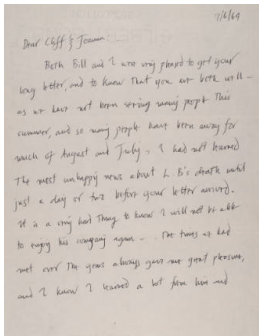 7/6/69
Dear Cliff & Joanna
Both Bill and I are very pleased to get your
long letter, and to know that you are both well –
as we have not been seeing many people this
summer, and so many people have been away for
much of August and July – I had not learned
the most unhappy news about L. B's death until
just a day or two before your letter arrived.
It is a very hard thing to know I will not be able
to enjoy his company again – . The times we had
met over the years always gave me great pleasure,
and I know I learned a lot from him and